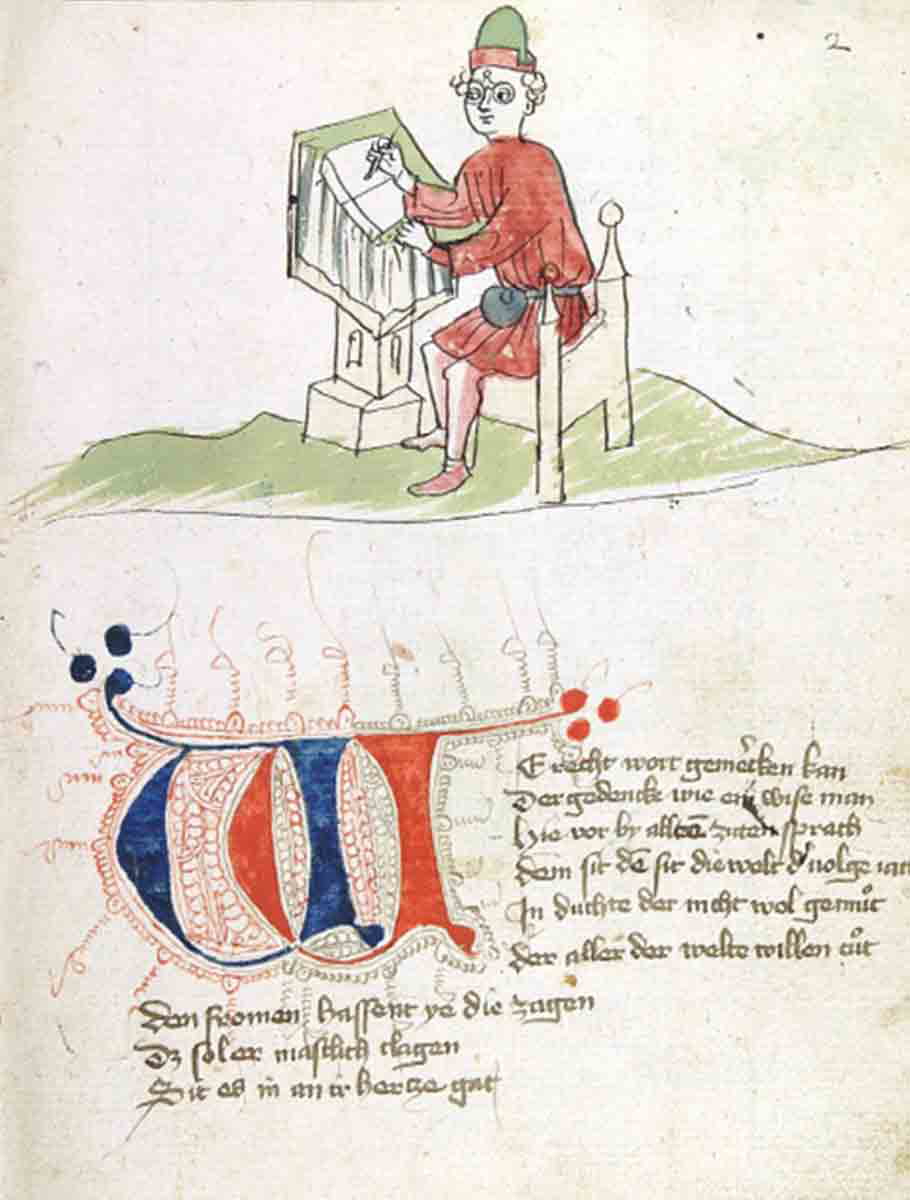 2
W
E recht wort gem̕cken kan
Der gedencke wie ein wise man
Hie vor by allē ziten sprach
dem sit dē sit die welt d' volge
In duchte der nicht wol gemůt
der aller der welte willen tůt
Den fromen hassent ye die zagen
Dz sol er clagen
Sit es in an ir hertze gat